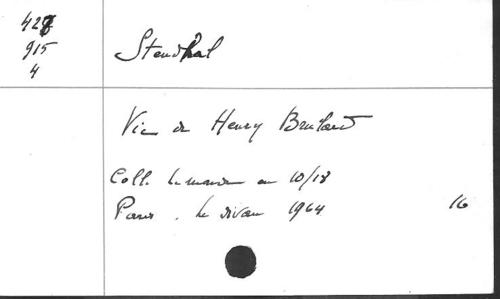 428
915
4
Stendhal
Vie de Henry Brulard
Coll. Le monde en 10/18
Paris. Le divan 1964 16